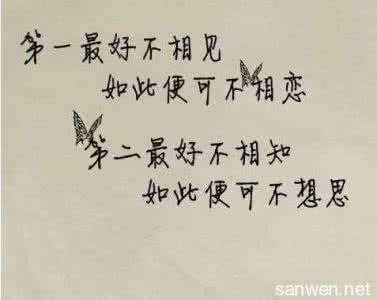 第一最好不相见
如此便可不相恋
第二最好不相知
如此便可不想思
sanwen.net